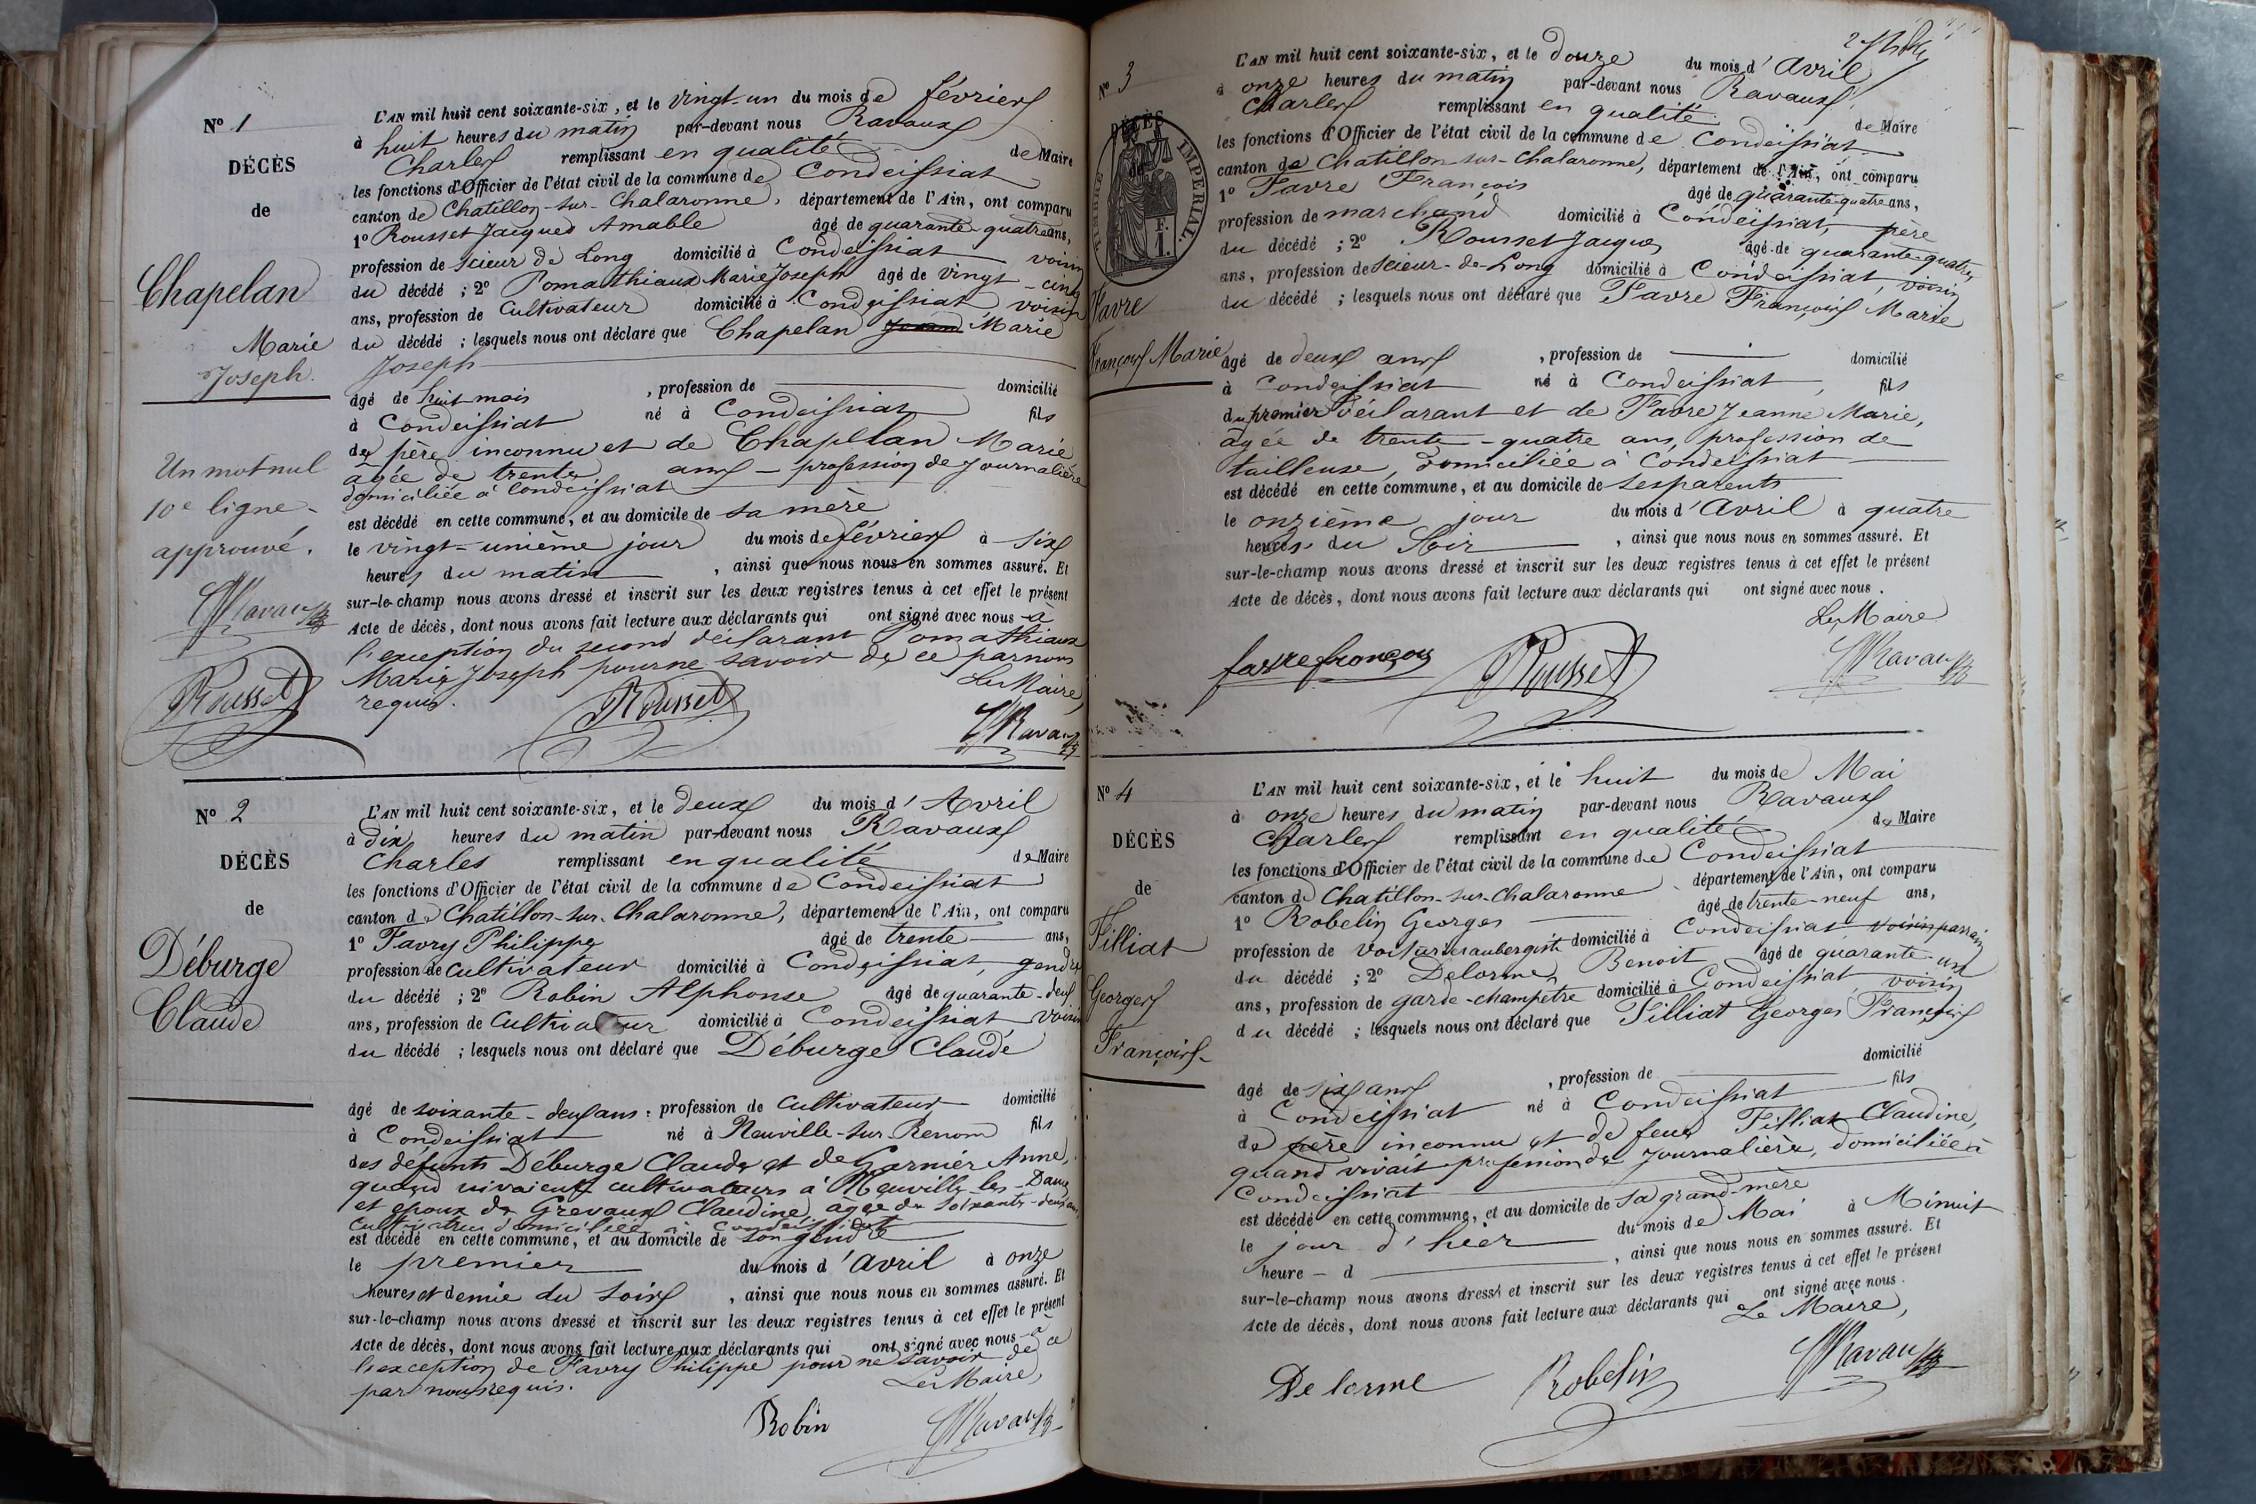 N° 1
DÉCÈS
de
Chapelan
Marie
Joseph.
Un mot nul
10e ligne
approuvé.
CRavaux
Rousset
L'AN mil huit cent soixante-six, et le vingt-un du mois de février
à huit heures du matin par-devant nous Ravaux
Charles remplissant en qualité de Maire
les fonctions d'Officier de l'état civil de la commune de Condeissiat
canton de Chatillon-sur-Chalaronne, département de l'Ain, ont comparu
1° Rousset Jacques Amable âgé de quarante-quatre ans,
profession de Scieur de Long domicilié à Condeissiat voisin
du décédé ; 2° Pomathiaux Marie Joseph âgé de vingt-cinq
ans, profession de Cultivateur domicilié à Condeissiat voisin
du décédé ; lesquels nous ont déclaré que Chapelan Marie
Joseph
âgé de huit mois , profession de domicilié
à Condeissiat né à Condeissiat fils
de père inconnu et de Chapelan Marie
agée de trente ans – profession de Journalière
domiciliée à Condeissiat
est décédé en cette commune, et au domicile de sa mère
le vingt-unième jour du mois de février à six
heures du matin , ainsi que nous nous en sommes assuré. Et
sur-le-champ nous avons dressé et inscrit sur les deux registres tenus à cet effet le présent
Acte de décès, dont nous avons fait lecture aux déclarants qui ont signé avec nous à
l'exception du second déclarant Pomathiaux
Marie Joseph pour ne savoir de ce par nous
requis. Le Maire
Rousset CRavaux
N° 2
DÉCÈS
de
Déburge
Claude
L'AN mil huit cent soixante-six, et le deux du mois d'Avril
à dix heures du matin par-devant nous Ravaux
Charles remplissant en qualité de Maire
les fonctions d'Officier de l'état civil de la commune de Condeissiat
canton de Chatillon-sur-Chalaronne, département de l'Ain, ont comparu
1° Favry Philippe âgé de trente ans,
profession de cultivateur domicilié à Condeissiat, gendre
du décédé ; 2° Robin Alphonse âgé de quarante-deux
ans, profession de Cultivateur domicilié à Condeissiat voisin
du décédé ; lesquels nous ont déclaré que Déburge Claude
âgé de soixante-deux ans : profession de Cultivateur domicilié
à Condeissiat né à Neuville-sur-Renom fils
des défunts Déburge Claude et de Garnier Anne,
quand vivaient cultivateurs à Neuville-les-Dames
et epoux de Grevaux Claudine, âgée de soixante-deux ans
Cultivatrice domiciliée à Condeissiat
est décédé en cette commune, et au domicile de son gendre
le premier du mois d'Avril à onze
heures et demie du soir , ainsi que nous nous en sommes assuré. Et
sur-le-champ nous avons dressé et inscrit sur les deux registres tenus à cet effet le présent
Acte de décès, dont nous avons fait lecture aux déclarants qui ont signé avec nous à
l'exception de Favry Philippe pour ne savoir de ce
par nous requis. Le Maire,
Robin CRavaux
N° 3
DÉCÈS
de
TIMBRE IMPÉRIAL.
F.
1.
Favre
François Marie
L'AN mil huit cent soixante-six, et le douze du mois d'Avril
à onze heures du matin par-devant nous Ravaux
Charles remplissant en qualité de Maire
les fonctions d'Officier de l'état civil de la commune de Condeissiat
canton de Chatillon-sur-Chalaronne, département de l'Ain, ont comparu
1° Favre François âgé de quarante-quatre ans,
profession de marchand domicilié à Condeissiat, père
du décédé ; 2° Rousset Jacques âgé de quarante-quatre
ans, profession de Scieur-de-Long domicilié à Condeissiat, voisin
du décédé ; lesquels nous ont déclaré que Favre François Marie
âgé de deux ans , profession de domicilié
à Condeissiat né à Condeissiat, fils
du premier déclarant et de Favre Jeanne Marie,
agée de trente-quatre ans, profession de
tailleuse, domiciliée à Condeissiat
est décédé en cette commune, et au domicile de ses parents
le onzième jour du mois d'Avril à quatre
heures du Soir , ainsi que nous nous en sommes assuré. Et
sur-le-champ nous avons dressé et inscrit sur les deux registres tenus à cet effet le présent
Acte de décès, dont nous avons fait lecture aux déclarants qui ont signé avec nous.
Le Maire
favre françois Rousset CRavaux
N° 4
DÉCÈS
de
Filliat
Georges
François
L'AN mil huit cent soixante-six, et le huit du mois de Mai
à onze heures du matin par-devant nous Ravaux
Charles remplissant en qualité de Maire
les fonctions d'Officier de l'état civil de la commune de Condeissiat
canton de Chatillon-sur-Chalaronne département de l'Ain, ont comparu
1° Robelin Georges âgé de trente-neuf ans,
profession de Voiturier aubergiste domicilié à Condeissiat voisin parrain
du décédé ; 2° Delorme Benoit âgé de quarante-un
ans, profession de garde-champêtre domicilié à Condeissiat, voisin
du décédé ; lesquels nous ont déclaré que Filliat Georges François
âgé de six ans , profession de domicilié
à Condeissiat né à Condeissiat fils
de père inconnu et de feue Filliat Claudine,
quand vivait profession de Journalière, domiciliée à
Condeissiat
est décédé en cette commune, et au domicile de sa grand-mère
le jour d'hier du mois de Mai à Minuit
heure – d , ainsi que nous nous en sommes assuré. Et
sur-le-champ nous avons dressé et inscrit sur les deux registres tenus à cet effet le présent
Acte de décès, dont nous avons fait lecture aux déclarants qui ont signé avec nous.
Le Maire,
Delorme Robelin CRavaux